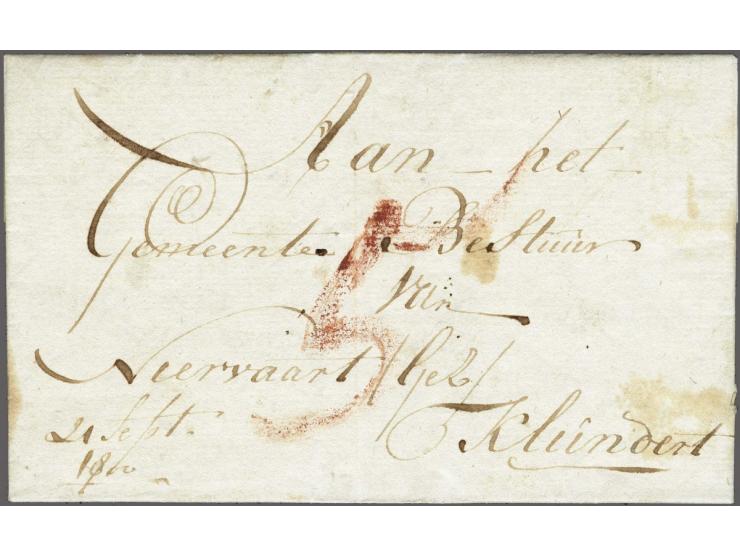 Aan het
Gemeente Bestuur
Van
Niervaart /
Klundert
21 Sept.
5